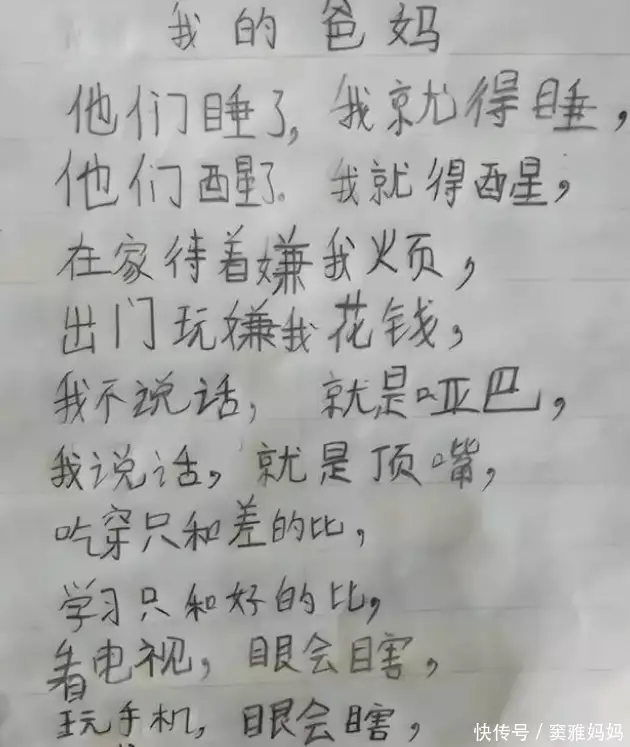 我的爸妈
他们睡了,我就得睡,
他们醒了。我就得醒,
在家待着嫌我烦,
出门玩嫌我花钱,
我不说话,就是哑巴,
我说话,就是顶嘴,
吃穿只和差的比,
学习只和好的比,
看电视,眼会瞎,
玩手机,眼会瞎,
快传号/窦雅妈妈